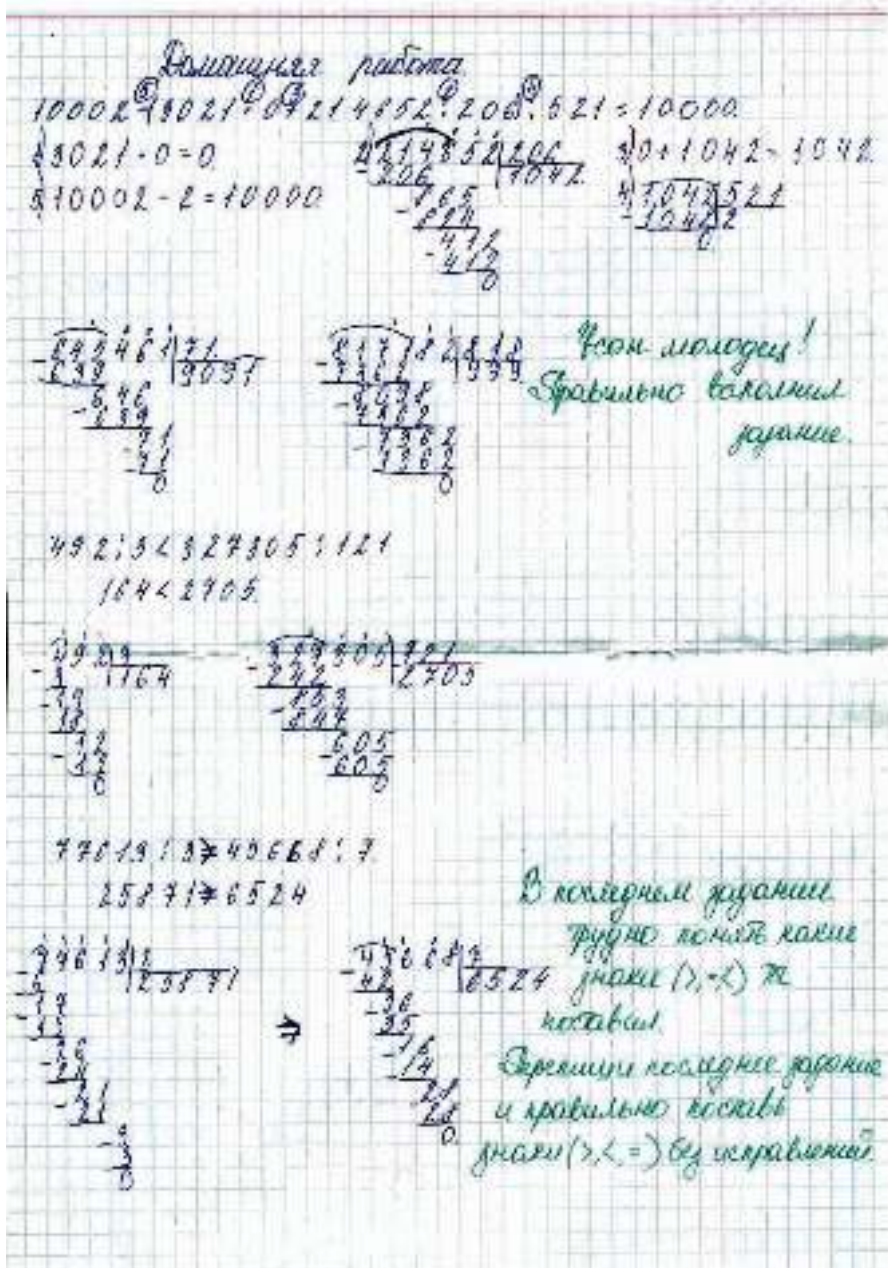 Домашняя работа
10002-13021·0+214652:206:521=10000
1)3021·0=0
2)214652|206
-206 1042
865
-824
412
-412
0
3)0+1042=1042
4)1042|521
-1042 2
0
5)10002-2=10000
-642461|71
639 9097
-646
639
-71
71
0
-817182|818
7362 999
-8098
7362
-7362
7362
0
молодец!
Правильно выполнил
задание.
492:3<327305:121
164<2705
-492|3
3 164
-19
18
-12
12
0
-327305|121
242 2705
-853
847
-605
605
0
77613:3>45668:7
25871>6524
-77613|3
25871
-21
21
-3
3
0
>
-45668|7
42 6524
-36
35
-16
14
-28
28
0
В последнем задании
трудно понять какие
знаки (>,=<) ты
поставил.
Перепиши последнее задание
и правильно поставь
знаки (>,<,=) без исправлений.